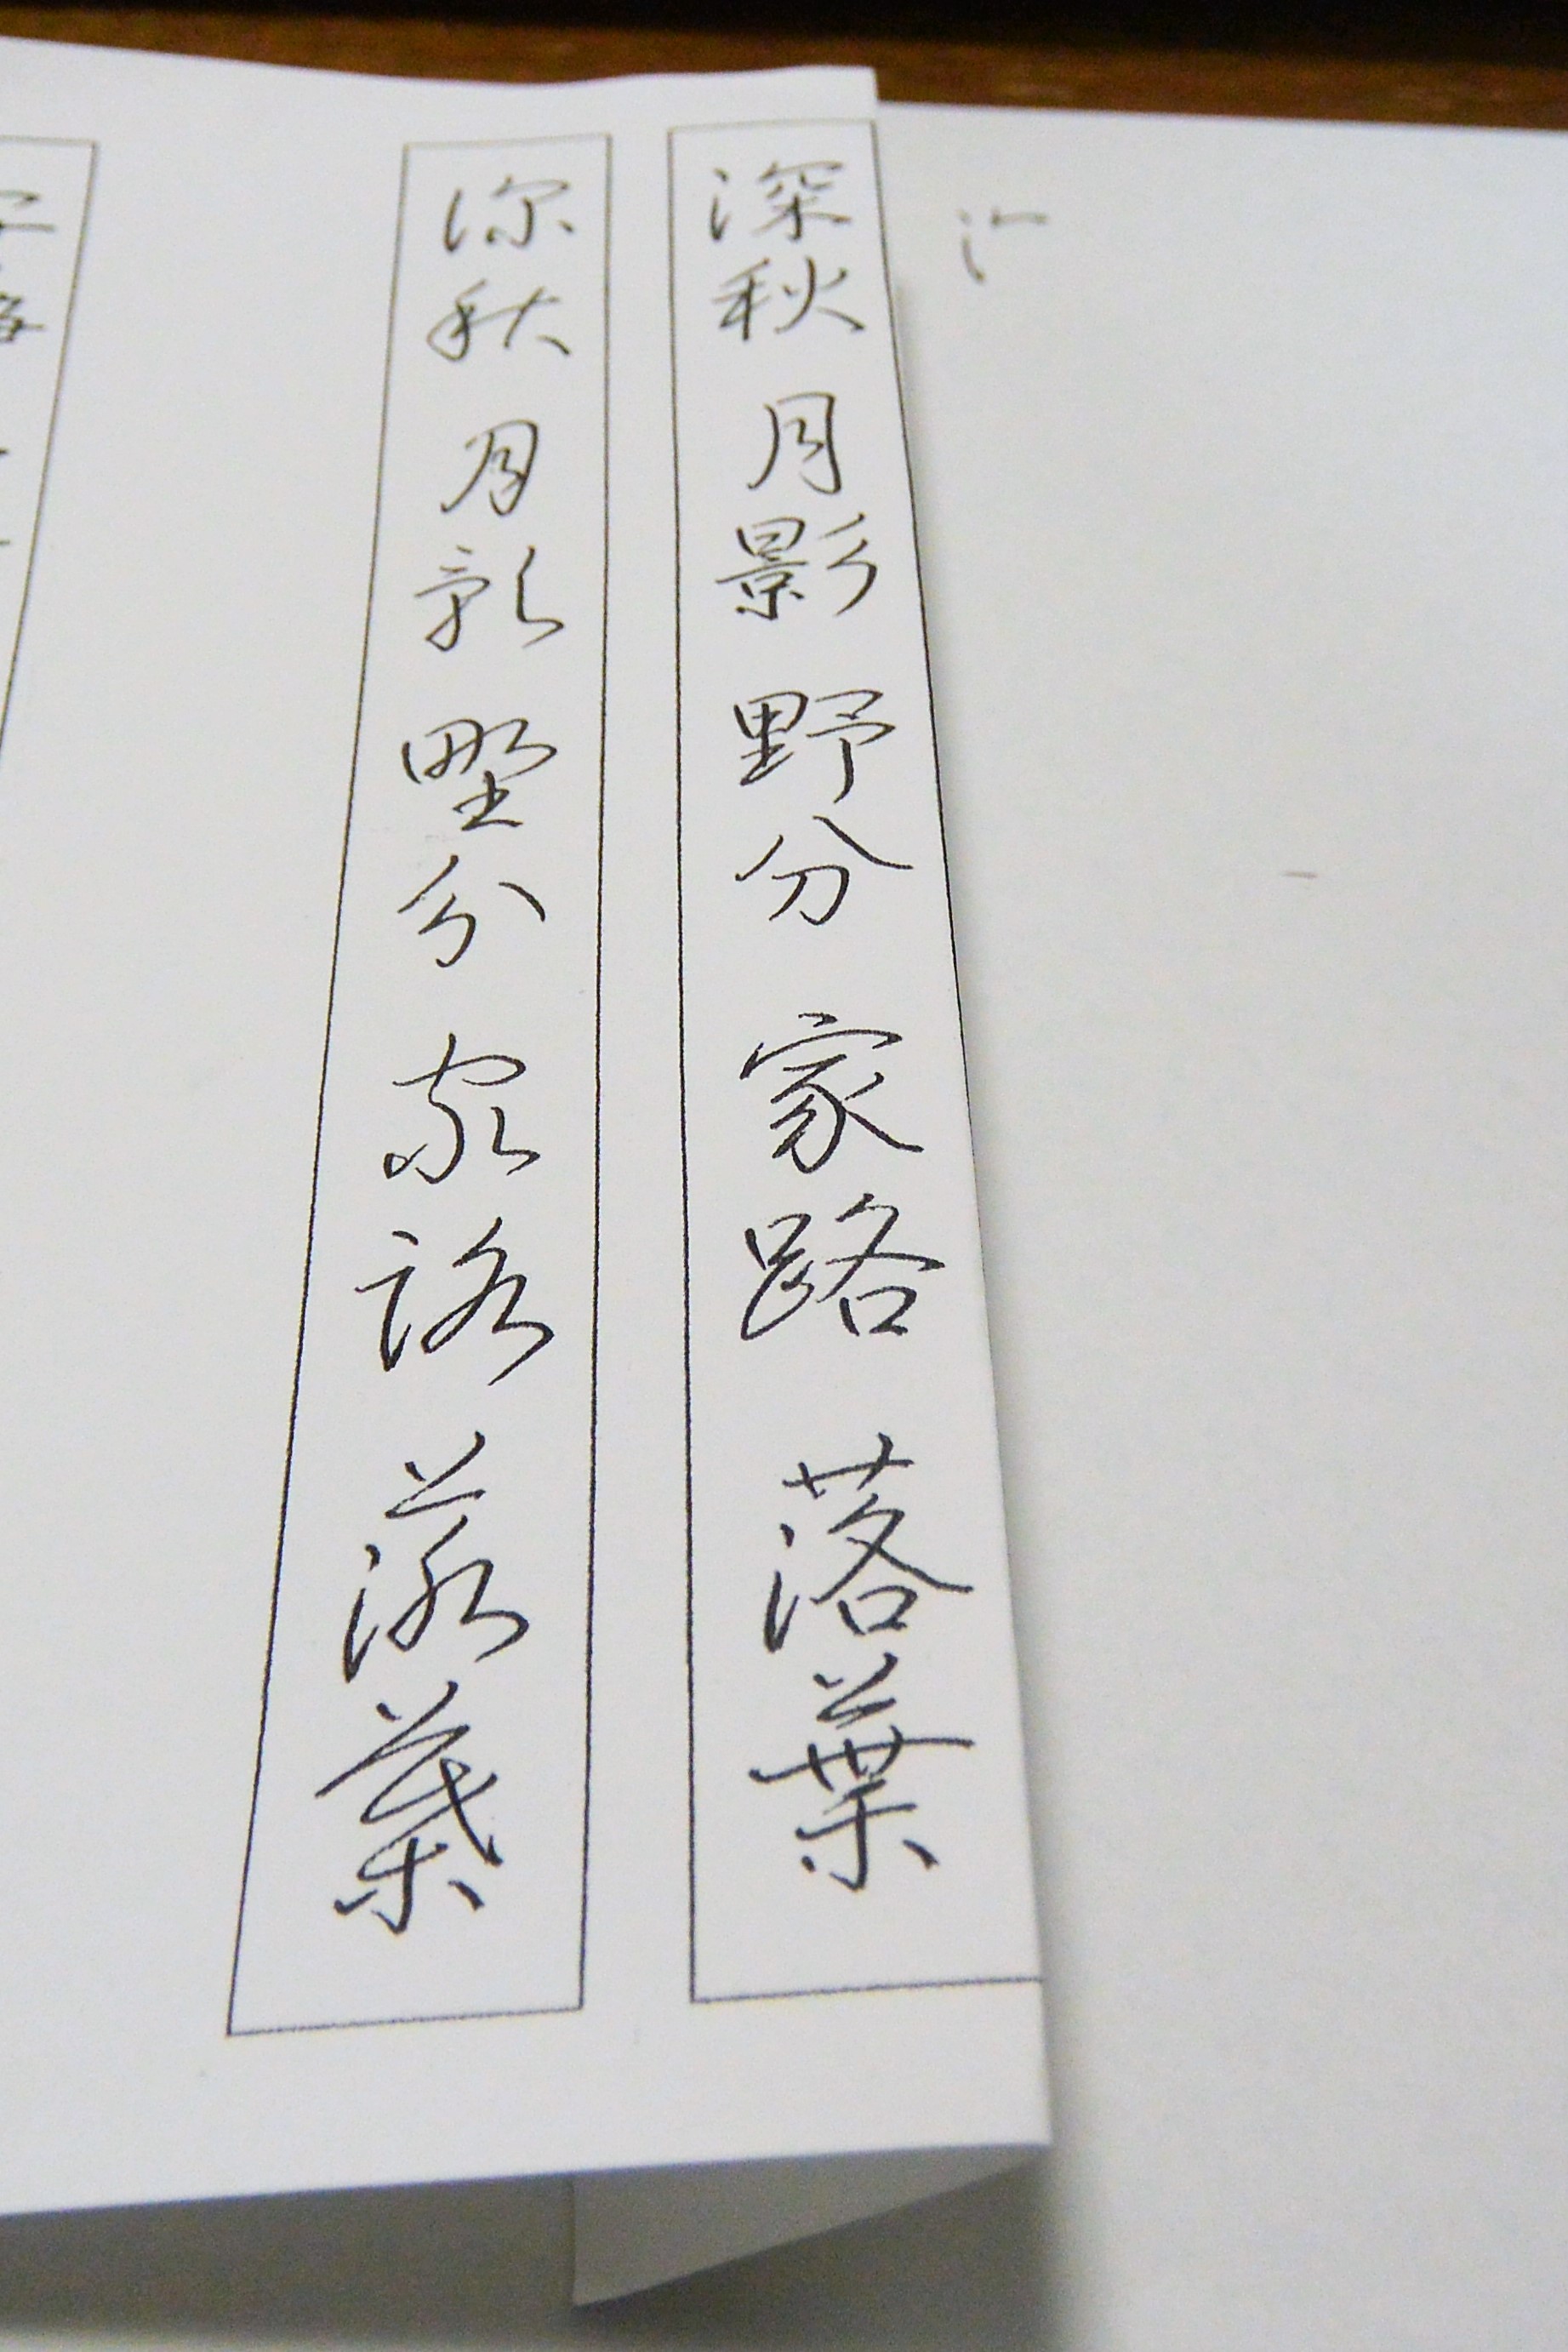 深秋 月影 野分 家路 落葉
深秋 月影 野分 家路 落葉